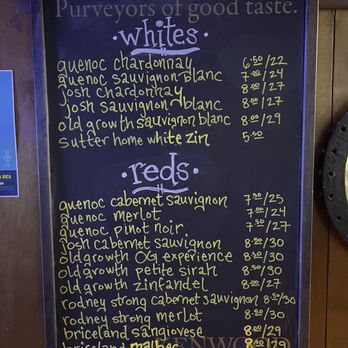 Purveyors of good taste.
whites
guenoc chardonnay 6.50/22
guenoc sauvignon blanc 7.00/24
josh chardonnay 8.00/27
josh sauvignon blanc 8.00/27
old growth sauvignon blanc 8.00/29
sutter home white zin 5.50
reds
guenoc cabernet sauvignon 7.50/25
guenoc merlot 7.00/24
guenoc pinot noir 7.50/27
josh cabernet sauvignon 8.50/30
old growth OG experience 8.50/30
old growth petite sirah 8.50/30
old growth zinfandel 8.00/27
rodney strong cabernet sauvignon 8.50/30
rodney strong merlot 8.50/30
briceland sangiovese 8.00/29
briceland malbec 8.00/29